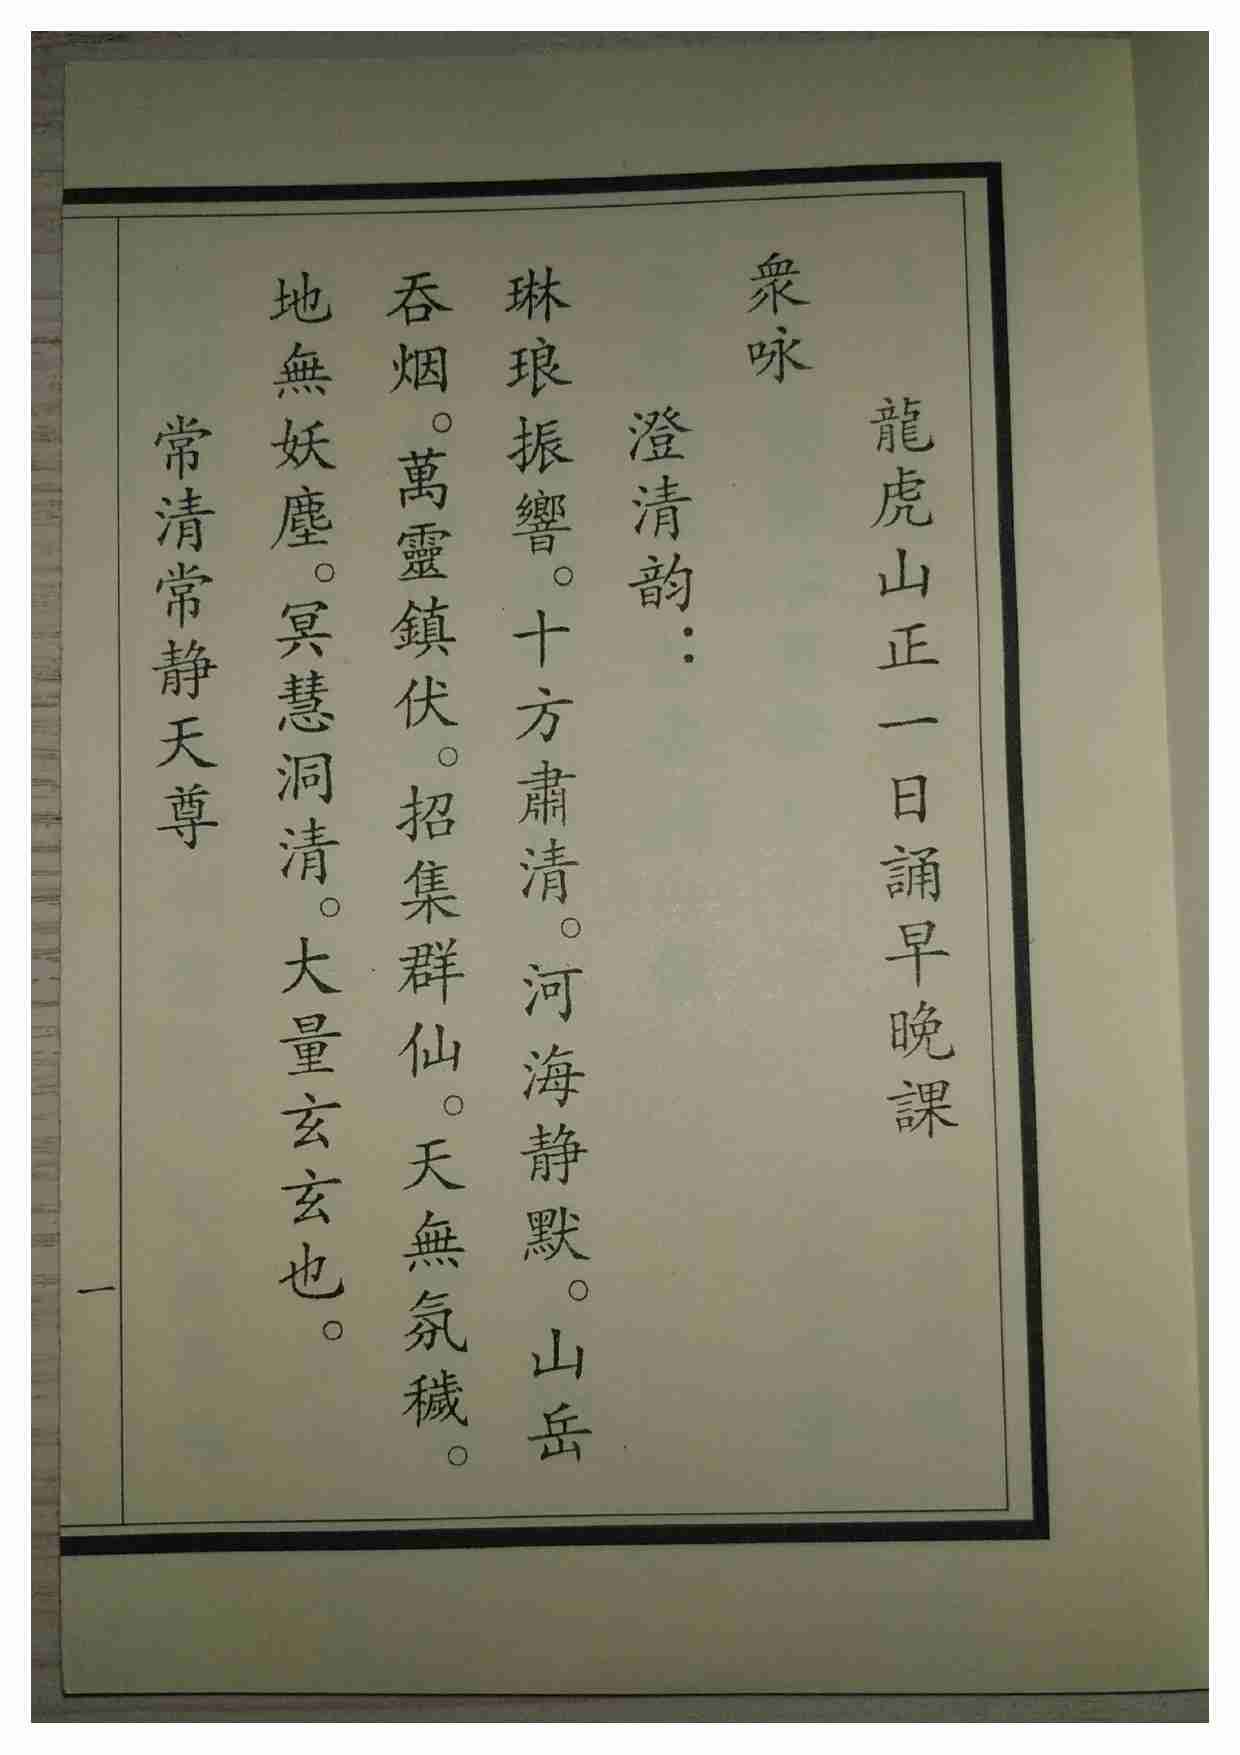 龍虎山正一日誦早晚課
衆咏
澄清韵：
琳琅振響。十方肅清。河海静默。山岳
吞烟。萬靈鎮伏。招集群仙。天無氛穢。
地無妖塵。冥慧洞清。大量玄玄也。
常清常静天尊
一